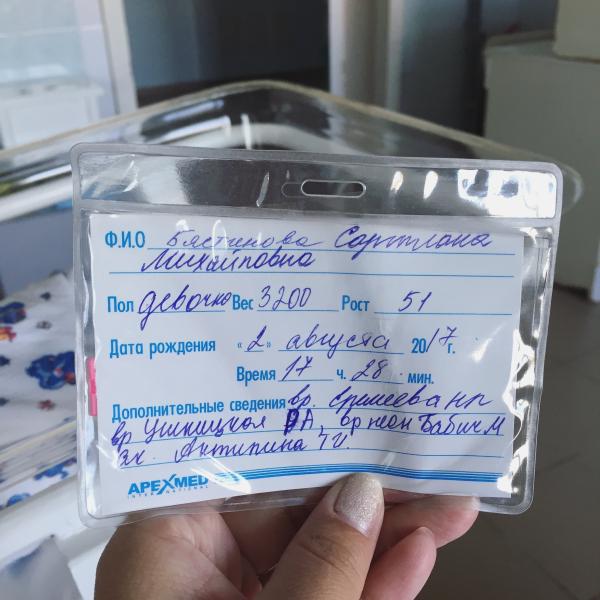 Ф.И.О Бястинова Сартлана
Михайловна
Пол девочка Вес 3200 Рост 51
Дата рождения «2» августа 2017 г.
Время 17 ч. 28 мин.
Дополнительные сведения вр. Еремеева НР
вр Ушницкая А, вр неон Бабич М
ак. Антипина
APEXMED
INTERNATIONAL